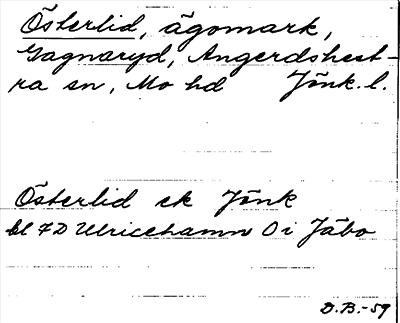 Österlid, ägomark,
Gagnaryd, Angerdshest-
ra sn, Mo hd Jönk. l.
Österlid ek Jönk
bl 7D Ulricehamn O i Jäbo
D.B.-59